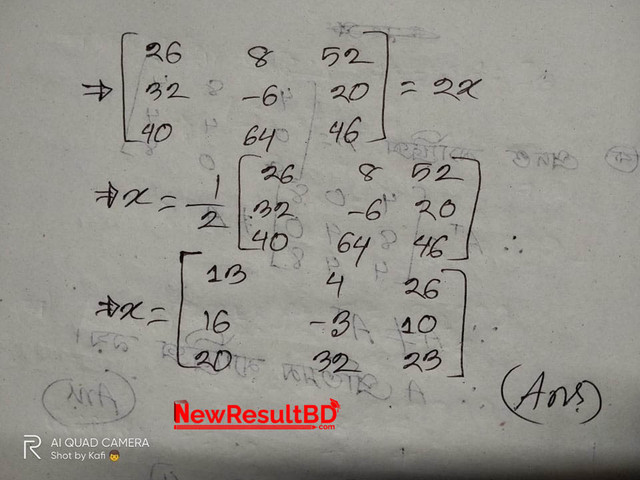 ⇒ [26 8 52
32 -6 20
40 64 46] = 2x
⇒ x = 1/2 [26 8 52
32 -6 20
40 64 46]
⇒ x = [13 4 26
16 -3 10
20 32 23]
(Ans)
NewResultBD.com
AI QUAD CAMERA
Shot by Kafi 👦